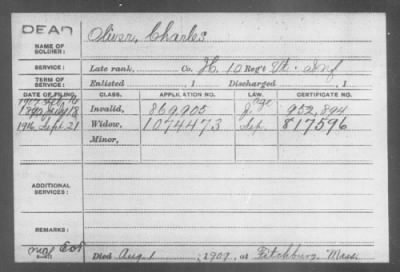 DEAD
NAME OF SOLDIER: Oliver, Charles
SERVICE: Late rank, Co. H. 10 Reg't Vt. Inf
TERM OF SERVICE: Enlisted , 1 Discharged , 1
DATE OF FILING. CLASS. APPLICATION NO. LAW. CERTIFICATE NO.
1907 Feb
1890 18 Invalid, 869,905 Age 952,894
1916 Sept. 21 Widow, 1074473 Sep. 817596
Minor,
ADDITIONAL SERVICES:
REMARKS:
Died Aug 1 , 1907, at Fitchburg Mass.